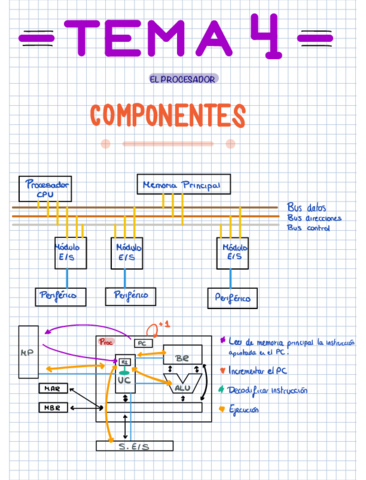 TEMA 4
EL PROCESADOR
COMPONENTES
Procesador
CPU
Memoria Principal
Bus datos
Bus direcciones
Bus control
Módulo
E/S
Módulo
E/S
Módulo
E/S
Periférico
Periférico
Periférico
+1
Proc
PC
MP
BR
UC
ALU
MAR
MBR
S. E/S
Leer de memoria principal la instrucción
apuntada en el PC.
Incrementar el PC
Decodificar instrucción
Ejecución